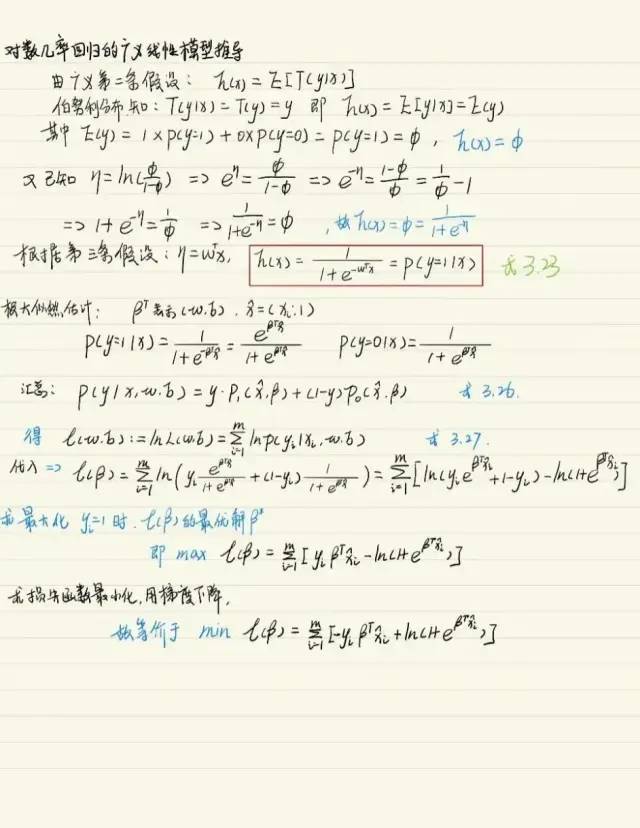 对数几率回归的广义线性模型推导
由广义第二条假设: h(x) = E[T(y|x)]
伯努利分布知: T(y|x) = T(y) = y 即 h(x) = E[y|x] = E(y)
其中 E(y) = 1×p(y=1) + 0×p(y=0) = p(y=1) = φ , h(x) = φ
又已知 η = ln(φ/(1-φ)) => e^η = φ/(1-φ) => e^{-η} = (1-φ)/φ = 1/φ - 1
=> 1 + e^{-η} = 1/φ => 1/(1+e^{-η}) = φ , 故 h(x) = φ = 1/(1+e^{-η})
根据第三条假设: η = w^T x, h(x) = 1/(1+e^{-w^T x}) = p(y=1|x) 式 3.23
极大似然估计: β^T 表示 (w.b) . x̂ = (x;1)
p(y=1|x) = 1/(1+e^{-β^T x̂}) = e^{β^T x̂}/(1+e^{β^T x̂}) p(y=0|x) = 1/(1+e^{β^T x̂})
汇总: p(y|x,w.b) = y·p₁(x̂,β) + (1-y)p₀(x̂.β) 式 3.26.
得 ℓ(w.b) := lnL(w.b) = Σ_{i=1}^{m} ln p(y_i|x_i,w.b) 式 3.27.
代入 => ℓ(β) = Σ_{i=1}^{m} ln(y_i e^{β^T x̂}/(1+e^{β^T x̂}) + (1-y_i) 1/(1+e^{β^T x̂})) = Σ_{i=1}^{m} [ln(y_i e^{β^T x̂_i} + 1-y_i) - ln(1+e^{β^T x̂_i})]
求最大化 y_i=1 时. ℓ(β)的最优解β*
即 max ℓ(β) = Σ_{i=1}^{m} [y_i β^T x̂_i - ln(1+e^{β^T x̂_i})]
求损失函数最小化,用梯度下降,
故等价于 min ℓ(β) = Σ_{i=1}^{m} [-y_i β^T x̂_i + ln(1+e^{β^T x̂_i})]